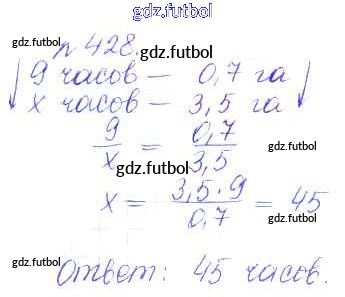 gdz.futbol
gdz.futbol № 428. gdz.futbol
9 часов — 0,7 га
x часов — 3,5 га
gdz.futbol gdz.futbol
9/x = 0,7/3,5
gdz.futbol
x = 3,5 · 9 / 0,7 = 45
gdz.futbol gdz.futbol
Ответ: 45 часов.
gdz.futbol gdz.futbol
gdz.futbol